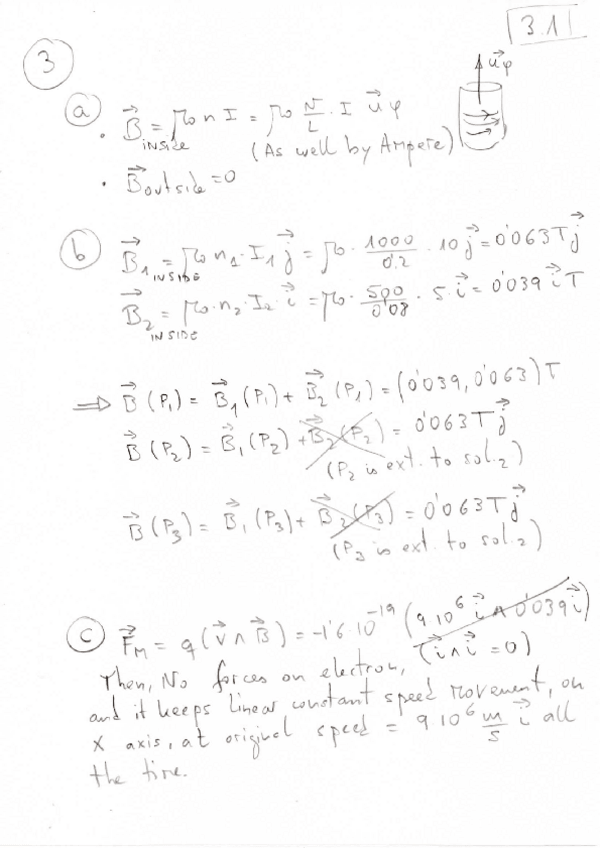 3.1
3
a
• B⃗ INSIDE = μ₀ n I = μ₀ N/L · I u⃗φ
u⃗φ
(As well by Ampere)
• B⃗ outside = 0
b
B⃗₁ INSIDE = μ₀ n₁ · I₁ j⃗ = μ₀ · 1000/0'2 · 10 j⃗ = 0'063 T j⃗
B⃗₂ INSIDE = μ₀ · n₂ · I₂ · i⃗ = μ₀ · 500/0'08 · 5 · i⃗ = 0'039 i⃗ T
⇒ B⃗ (P₁) = B⃗₁ (P₁) + B⃗₂ (P₁) = (0'039, 0'063) T
B⃗ (P₂) = B⃗₁ (P₂) + B⃗₂ (P₂) = 0'063 T j⃗
(P₂ is ext. to sol. 2)
B⃗ (P₃) = B⃗₁ (P₃) + B⃗₂ (P₃) = 0'063 T j⃗
(P₃ is ext. to sol. 2)
c
F⃗M = q (v⃗ ∧ B⃗) = -1'6·10⁻¹⁹ (9·10⁶ i⃗ ∧ 0'039 i⃗)
(i⃗ ∧ i⃗ = 0)
Then, No forces on electron,
and it keeps linear constant speed movement, on
X axis, at original speed = 9·10⁶ m/s i⃗ all
the time.